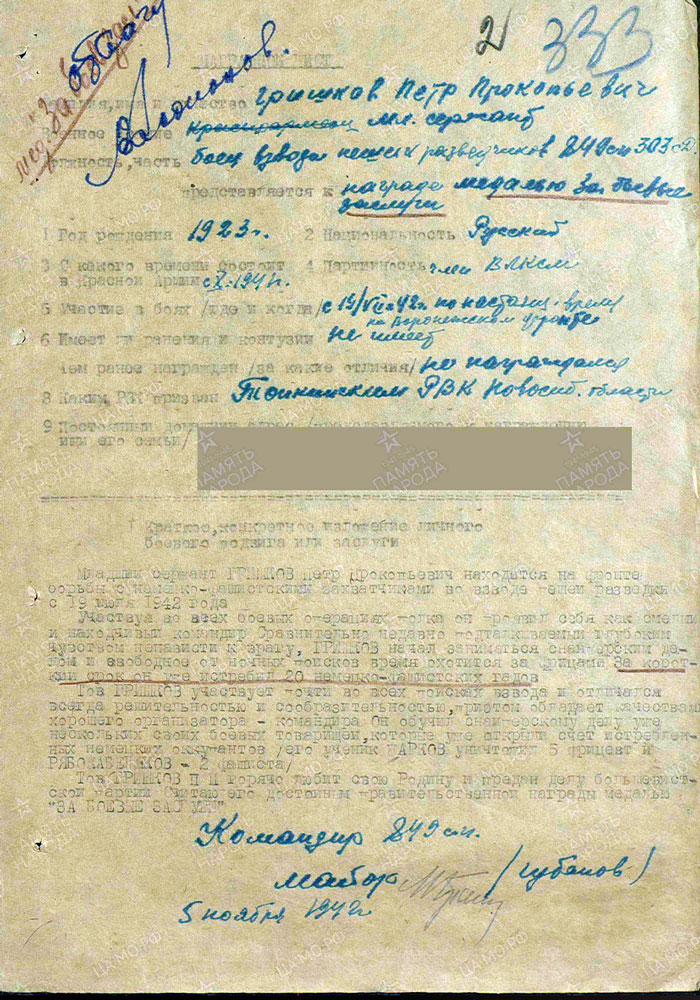 2
333
НАГРАДНОЙ ЛИСТ
Фамилия, имя и отчество Гришков Петр Прокопьевич
Военное звание красноармеец мл. сержант
Должность, часть боец взвода пеших разведчиков 849 сп 303 сд
представляется к награде медалью За боевые
заслуги
1 Год рождения 1923 г. 2 Национальность Русский
3 С какого времени состоит 4 Партийность член ВЛКСМ
в Красной Армии с X-1941 г.
5 Участие в боях /где и когда/ с 19/VII-42 г. по настоящ. время
на Воронежском фронте
6 Имеет ли ранения и контузии не имеет
Чем ранее награжден /за какие отличия/ не награждался
8 Каким РВК призван РВК Новосиб. области
9 Постоянный домашний адрес /представляемого к награждению
или его семьи/
ПАМЯТЬ НАРОДА
Краткое, конкретное изложение личного
боевого подвига или заслуги
Младший сержант ГРИШКОВ Петр Прокопьевич находится на фронте
борьбы с немецко-фашистскими захватчиками во взводе пешей разведки
с 19 июля 1942 года
Участвуя во всех боевых операциях полка он проявил себя как смелый
и находчивый командир Сравнительно недавно подталкиваемый глубоким
чувством ненависти к врагу, ГРИШКОВ начал заниматься снайперским де-
лом и свободное от ночных поисков время охотится за фрицами За корот-
кий срок он уже истребил 20 немецко-фашистских гадов
Тов ГРИШКОВ участвует почти во всех поисках взвода и отличался
всегда решительностью и сообразительностью, притом обладает качествами
хорошего организатора - командира Он обучил снайперскому делу уже
нескольких своих боевых товарищей, которые уже открыли счет истреблен-
ных немецких оккупантов /его ученик ЖАРКОВ уничтожил 5 фрицев и
- 2 фашиста/
Тов ГРИШКОВ П П горячо любит свою Родину и предан делу большевист-
ской партии Считаю его достойным правительственной награды медалью
"ЗА БОЕВЫЕ ЗАСЛУГИ"
Командир 849 сп.
майор (Губанов)
5 ноября 1942 г
ЦАМО.РФ